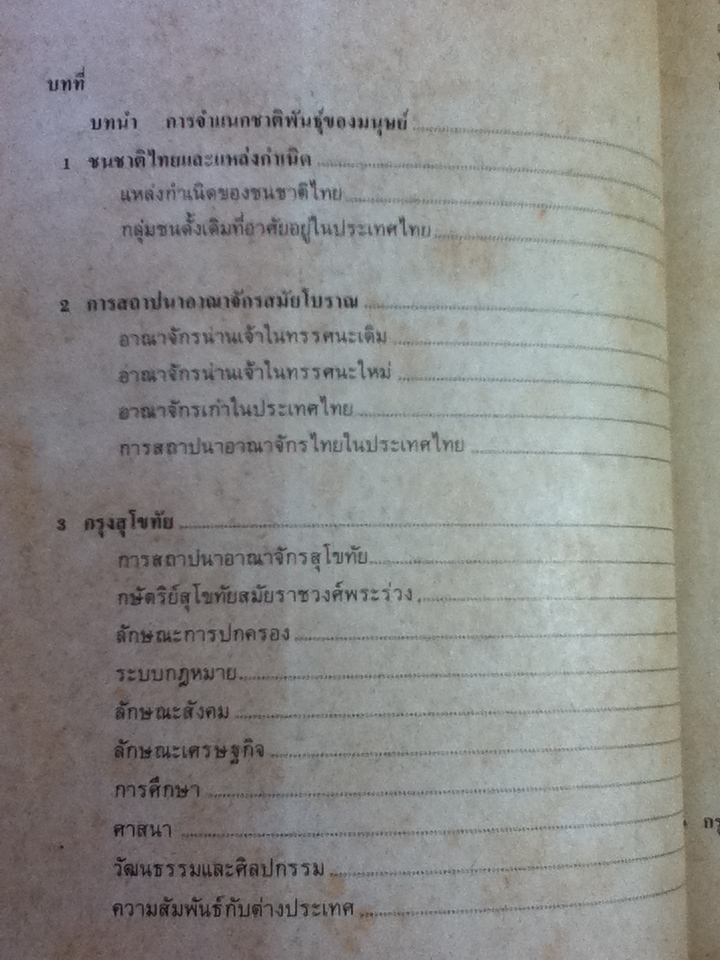 บทที่
บทนำ การจำแนกชาติพันธุ์ของมนุษย์
1 ชนชาติไทยและแหล่งกำเนิด
แหล่งกำเนิดของชนชาติไทย
กลุ่มชนดั้งเดิมที่อาศัยอยู่ในประเทศไทย
2 การสถาปนาอาณาจักรสมัยโบราณ
อาณาจักรน่านเจ้าในทรรศนะเดิม
อาณาจักรน่านเจ้าในทรรศนะใหม่
อาณาจักรเก่าในประเทศไทย
การสถาปนาอาณาจักรไทยในประเทศไทย
3 กรุงสุโขทัย
การสถาปนาอาณาจักรสุโขทัย
กษัตริย์สุโขทัยสมัยราชวงศ์พระร่วง
ลักษณะการปกครอง
ระบบกฎหมาย
ลักษณะสังคม
ลักษณะเศรษฐกิจ
การศึกษา
ศาสนา
วัฒนธรรมและศิลปกรรม
ความสัมพันธ์กับต่างประเทศ